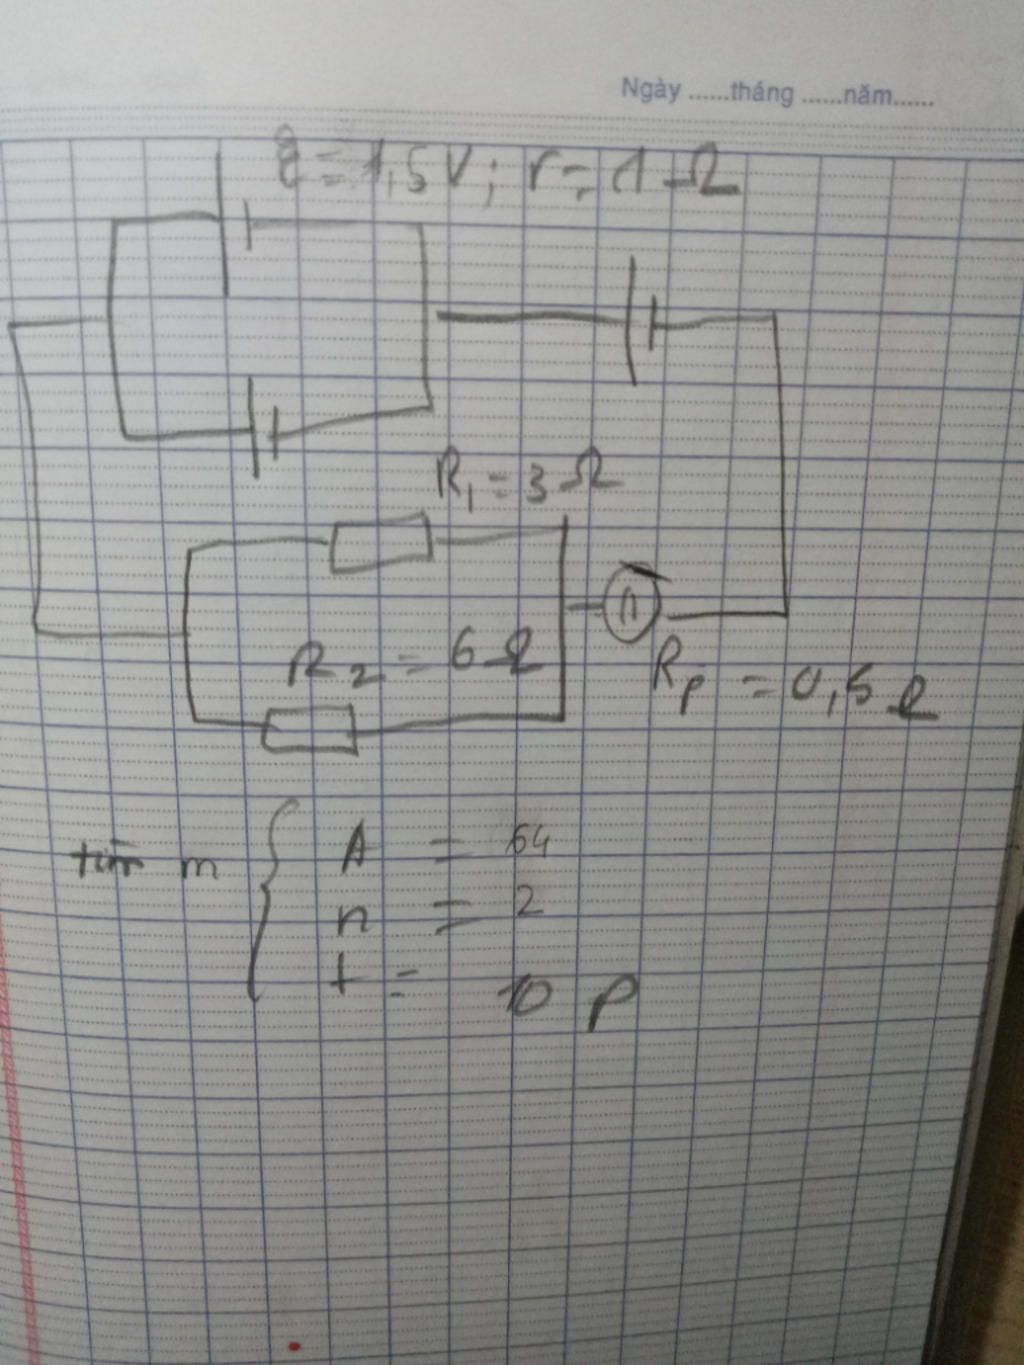 Ngày ......tháng ......năm......
ξ = 1,5V; r = 1 Ω
R₁ = 3 Ω
R₂ = 6 Ω
Rₚ = 0,5 Ω
tìm m { A = 64
n = 2
t = 10 p